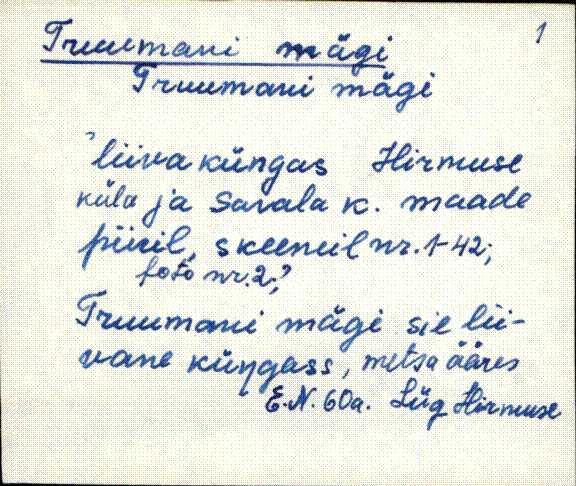 1
Truumani mägi
Truumani mägi
'liivaküngas Hirmuse
küla ja Savala k. maade
piiril, skeemil nr. 1-42;
foto nr. 2;?
Truumani mägi sie lii-
vane küŋgass, metsa ääres
E.N. 60a. Lüg Hirmuse